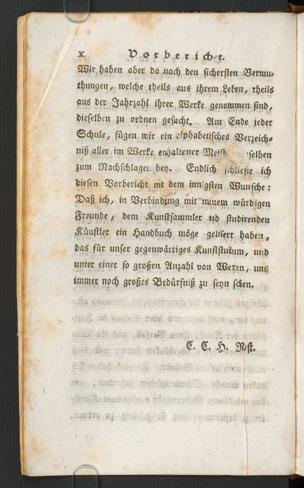 x Vorbericht.
Wir haben aber da nach den sichersten Vermu-
thungen, welche theils aus ihrem Leben, theils
aus der Jahrzahl ihrer Werke genommen sind,
dieselben zu ordnen gesucht. Am Ende jeder
Schule, fügen wir ein alphabetisches Verzeich-
niß aller im Werke enthaltener selben
zum Nachschlagen bey. Endlich schließe ich
diesen Vorbericht mit dem innigsten Wunsche:
Daß ich, in Verbindung mit meinem würdigen
Freunde, dem Kunstsammler und studirenden
Künstler ein Handbuch möge geliefert haben,
das für unser gegenwärtiges Kunststudium, und
unter einer so großen Anzahl von Werken, uns
immer noch großes Bedürfniß zu seyn schien.
C. C. H. Rost.